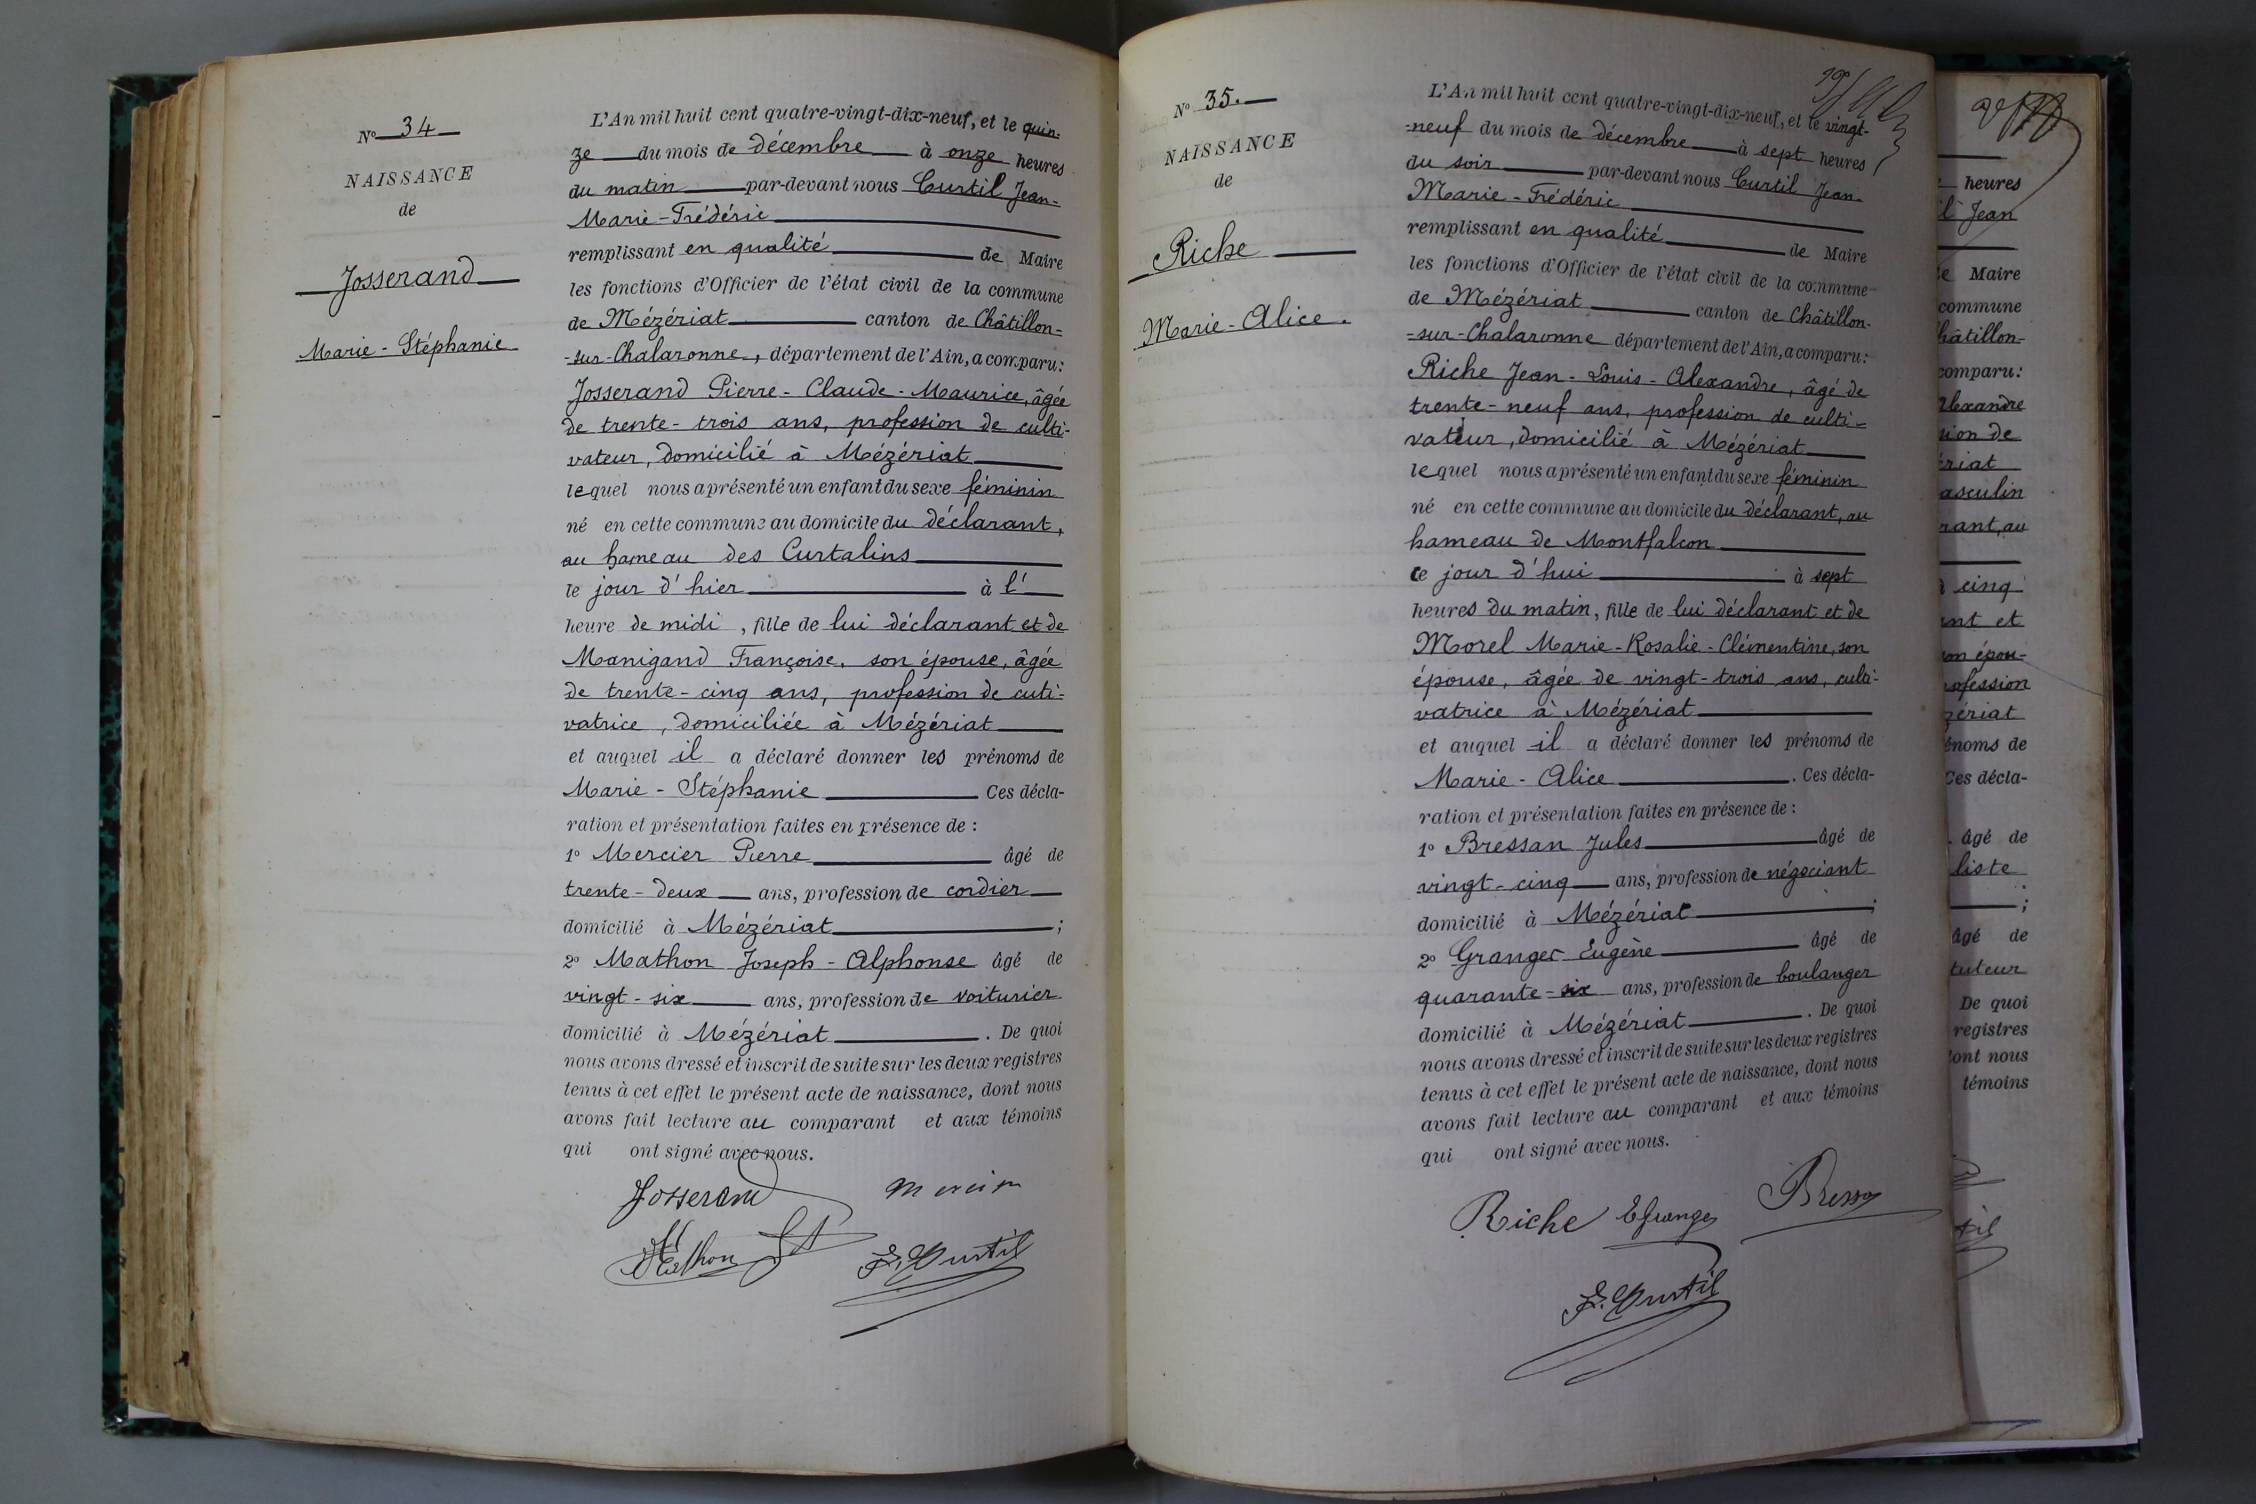 N° 34
NAISSANCE
de
Josserand
Marie-Stéphanie
L'An mil huit cent quatre-vingt-dix-neuf, et le quin-
ze du mois de décembre à onze heures
du matin par-devant nous Curtil Jean-
Marie-Frédéric
remplissant en qualité de Maire
les fonctions d'Officier de l'état civil de la commune
de Mézériat canton de Châtillon-
-sur-Chalaronne, département de l'Ain, a comparu:
Josserand Pierre-Claude-Maurice, âgée
de trente-trois ans, profession de culti-
vateur, domicilié à Mézériat
lequel nous a présenté un enfant du sexe féminin
né en cette commune au domicile du déclarant,
au hameau des Curtalins
le jour d'hier à l'
heure de midi, fille de lui déclarant et de
Manigand Françoise, son épouse, âgée
de trente-cinq ans, profession de cuti-
vatrice, domiciliée à Mézériat
et auquel il a déclaré donner les prénoms de
Marie-Stéphanie Ces décla-
ration et présentation faites en présence de :
1° Mercier Pierre âgé de
trente-deux ans, profession de cordier
domicilié à Mézériat ;
2° Mathon Joseph-Alphonse âgé de
vingt-six ans, profession de voiturier
domicilié à Mézériat . De quoi
nous avons dressé et inscrit de suite sur les deux registres
tenus à cet effet le présent acte de naissance, dont nous
avons fait lecture au comparant et aux témoins
qui ont signé avec nous.
Josserand Mercier
Mathon F. Curtil
N° 35.
NAISSANCE
de
Riche
Marie-Alice.
L'An mil huit cent quatre-vingt-dix-neuf, et le vingt-
-neuf du mois de décembre à sept heures
du soir par-devant nous Curtil Jean-
Marie-Frédéric
remplissant en qualité de Maire
les fonctions d'Officier de l'état civil de la commune
de Mézériat canton de Châtillon-
-sur-Chalaronne département de l'Ain, a comparu:
Riche Jean-Louis-Alexandre, âgé de
trente-neuf ans, profession de culti-
vateur, domicilié à Mézériat
lequel nous a présenté un enfant du sexe féminin
né en cette commune au domicile du déclarant, au
hameau de Montfalcon
ce jour d'hui à sept
heures du matin, fille de lui déclarant et de
Morel Marie-Rosalie-Clémentine, son
épouse, âgée de vingt-trois ans, culti-
vatrice à Mézériat
et auquel il a déclaré donner les prénoms de
Marie-Alice . Ces décla-
ration et présentation faites en présence de :
1° Bressan Jules âgé de
vingt-cinq ans, profession de négociant
domicilié à Mézériat ;
2° Granger Eugène âgé de
quarante-six ans, profession de boulanger
domicilié à Mézériat . De quoi
nous avons dressé et inscrit de suite sur les deux registres
tenus à cet effet le présent acte de naissance, dont nous
avons fait lecture au comparant et aux témoins
qui ont signé avec nous.
Riche E Granger Bressan
F. Curtil
heures
Jean
Maire
commune
hâtillon-
comparu:
Alexandre
sion de
ériat
asculin
rant, au
cinq
ant et
on épou-
rofession
zériat
énoms de
Ces décla-
âgé de
liste
;
âgé de
tuteur
De quoi
registres
dont nous
témoins
til